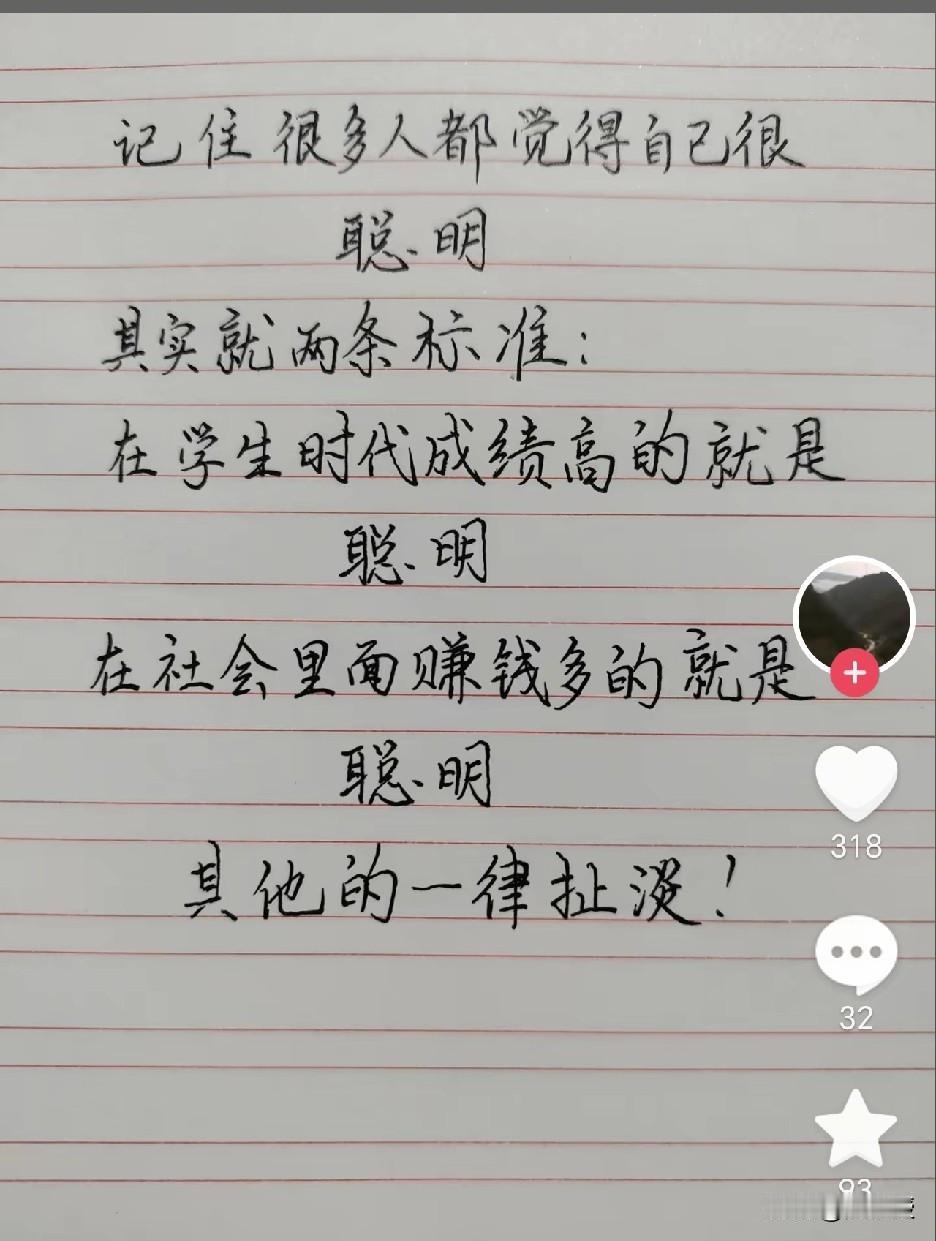 记住很多人都觉得自己很
聪明
其实就两条标准：
在学生时代成绩高的就是
聪明
在社会里面赚钱多的就是
聪明
其他的一律扯淡！
318
32
93